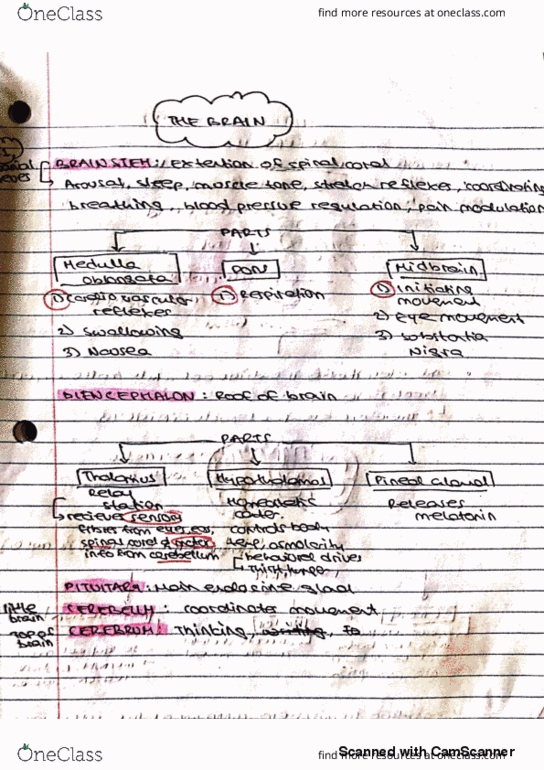 OneClass
find more resources at oneclass.com
THE BRAIN
BRAIN STEM: extention of spinal coral
Arousal, sleep, muscle tone, stretch reflexes, coordinating
breathing, blood pressure regulation, pain modulation
PARTS
Medulla oblongata
Pons
Midbrain
1) Cardio vascular reflexes
1) Respiration
1) Initiating movement
2) Swallowing
2) eye movement
3) Nausea
3) Substantia Nigra
DIENCEPHALON: Roof of brain
PARTS
Thalamus
Hypothalamus
Pineal Gland
Relay station
Homeostatic center.
Releases melatonin
recieves sensory
fibres from eyes, ears,
spinal cord & motor
info from cerebellum
controls body
temp, osmolarity
behavioral drives
Thirst, hunger,
PITUITARY: Main endocrine gland
little brain
CEREBELLM: coordinates movement
top of brain
CEREBRUM: Thinking, writing, to
OneClass
find more resources at oneclass.com
Scanned with CamScanner